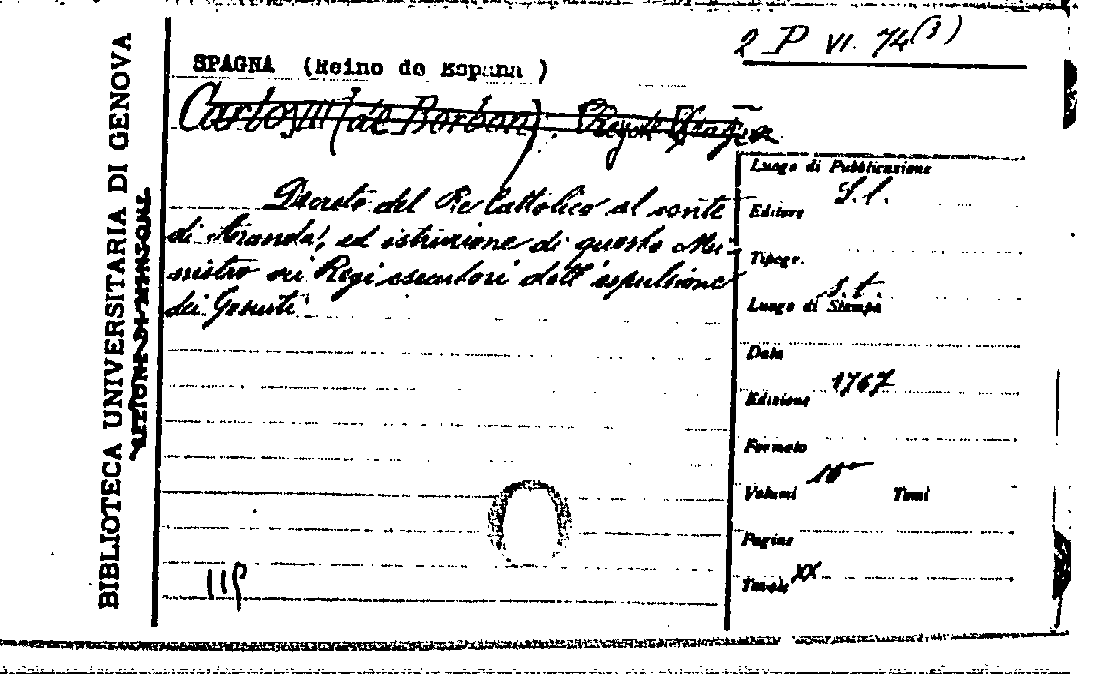 2 P VI. 74(3)
SPAGNA (Reino de Espana)
Carlos III (de Borbon), Re di Spagna
Decreto del Re Cattolico al conte
di Aranda, ed istruzione di questo Mi-
nistro ai Regi esecutori dell'espulsione
dei Gesuiti
Luogo di Pubblicazione
S.l.
Editore
Tipogr.
s.t.
Luogo di Stampa
Data
Edizione 1767
Formato
Volumi Tomi
Pagine
Tavole XX
BIBLIOTECA UNIVERSITARIA DI GENOVA